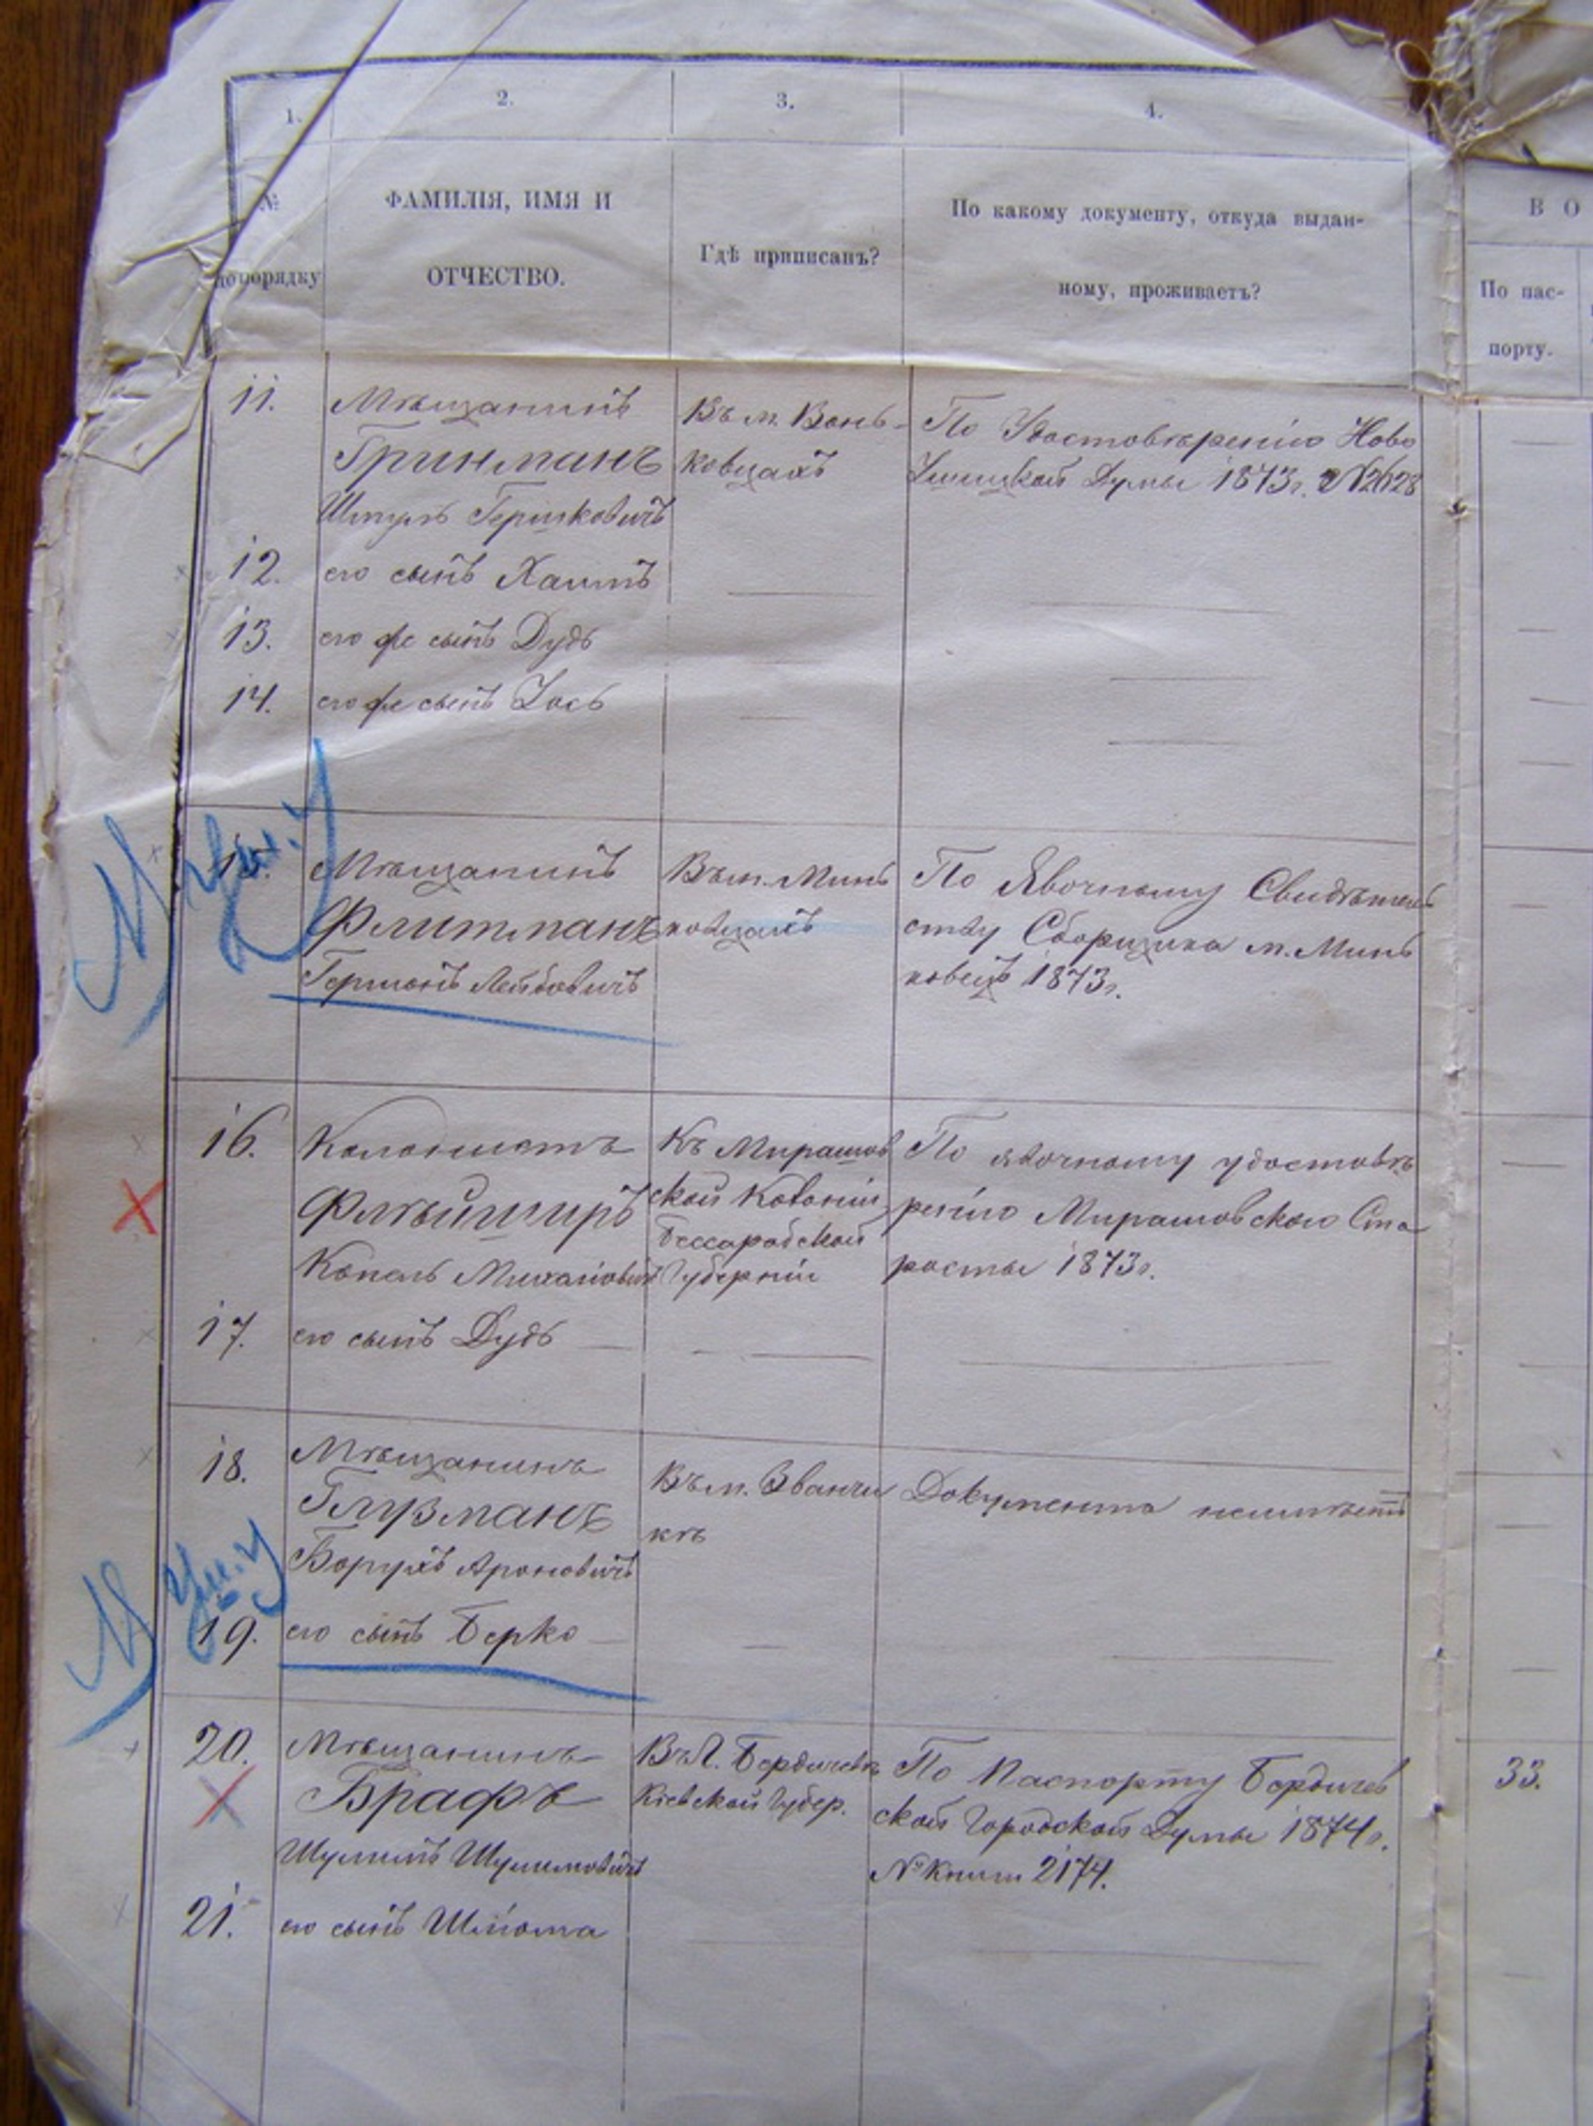 1.
2.
3.
4.
№
по порядку
ФАМИЛІЯ, ИМЯ И
ОТЧЕСТВО.
Гдѣ приписанъ?
По какому документу, откуда выдан-
ному, проживаетъ?
В О
По пас-
порту.
11. Мѣщанинъ
Гринманъ
Шмуль Гершковичъ
Въ м. Вонь-
ковцахъ
По Удостовѣренію Ново
Ушицкой Думы 1873г. №2628
12. его сынъ Хаимъ
13. его же сынъ Дудь
14. его же сынъ Іось
15. Мѣщанинъ
Флитманъ
Гершонъ Лейбовичъ
Въ м. Минь
ковцахъ
По Явочному Свидѣтель
ству Сборщика м. Минь
ковецъ 1873г.
16. Колонистъ
Флейширъ
Копель Михайловичъ
Къ Мирашов
ской Колоніи
Бессарабской
Губерніи
По явочному удостовѣ
ренію Мирашовскаго Ста
росты 1873г.
17. его сынъ Дудь
18. Мѣщанинъ
Глузманъ
Борухъ Ароновичъ
Въ м. Званчи
кѣ
Документа неимѣетъ
19. его сынъ Берко
20. Мѣщанинъ
Брафъ
Шулимъ Шулимовичъ
Въ г. Бердичевѣ
Кіевской Губер.
По Паспорту Бердичев
ской Городской Думы 1874г.
№ книги 2174.
33.
21. его сынъ Шліома